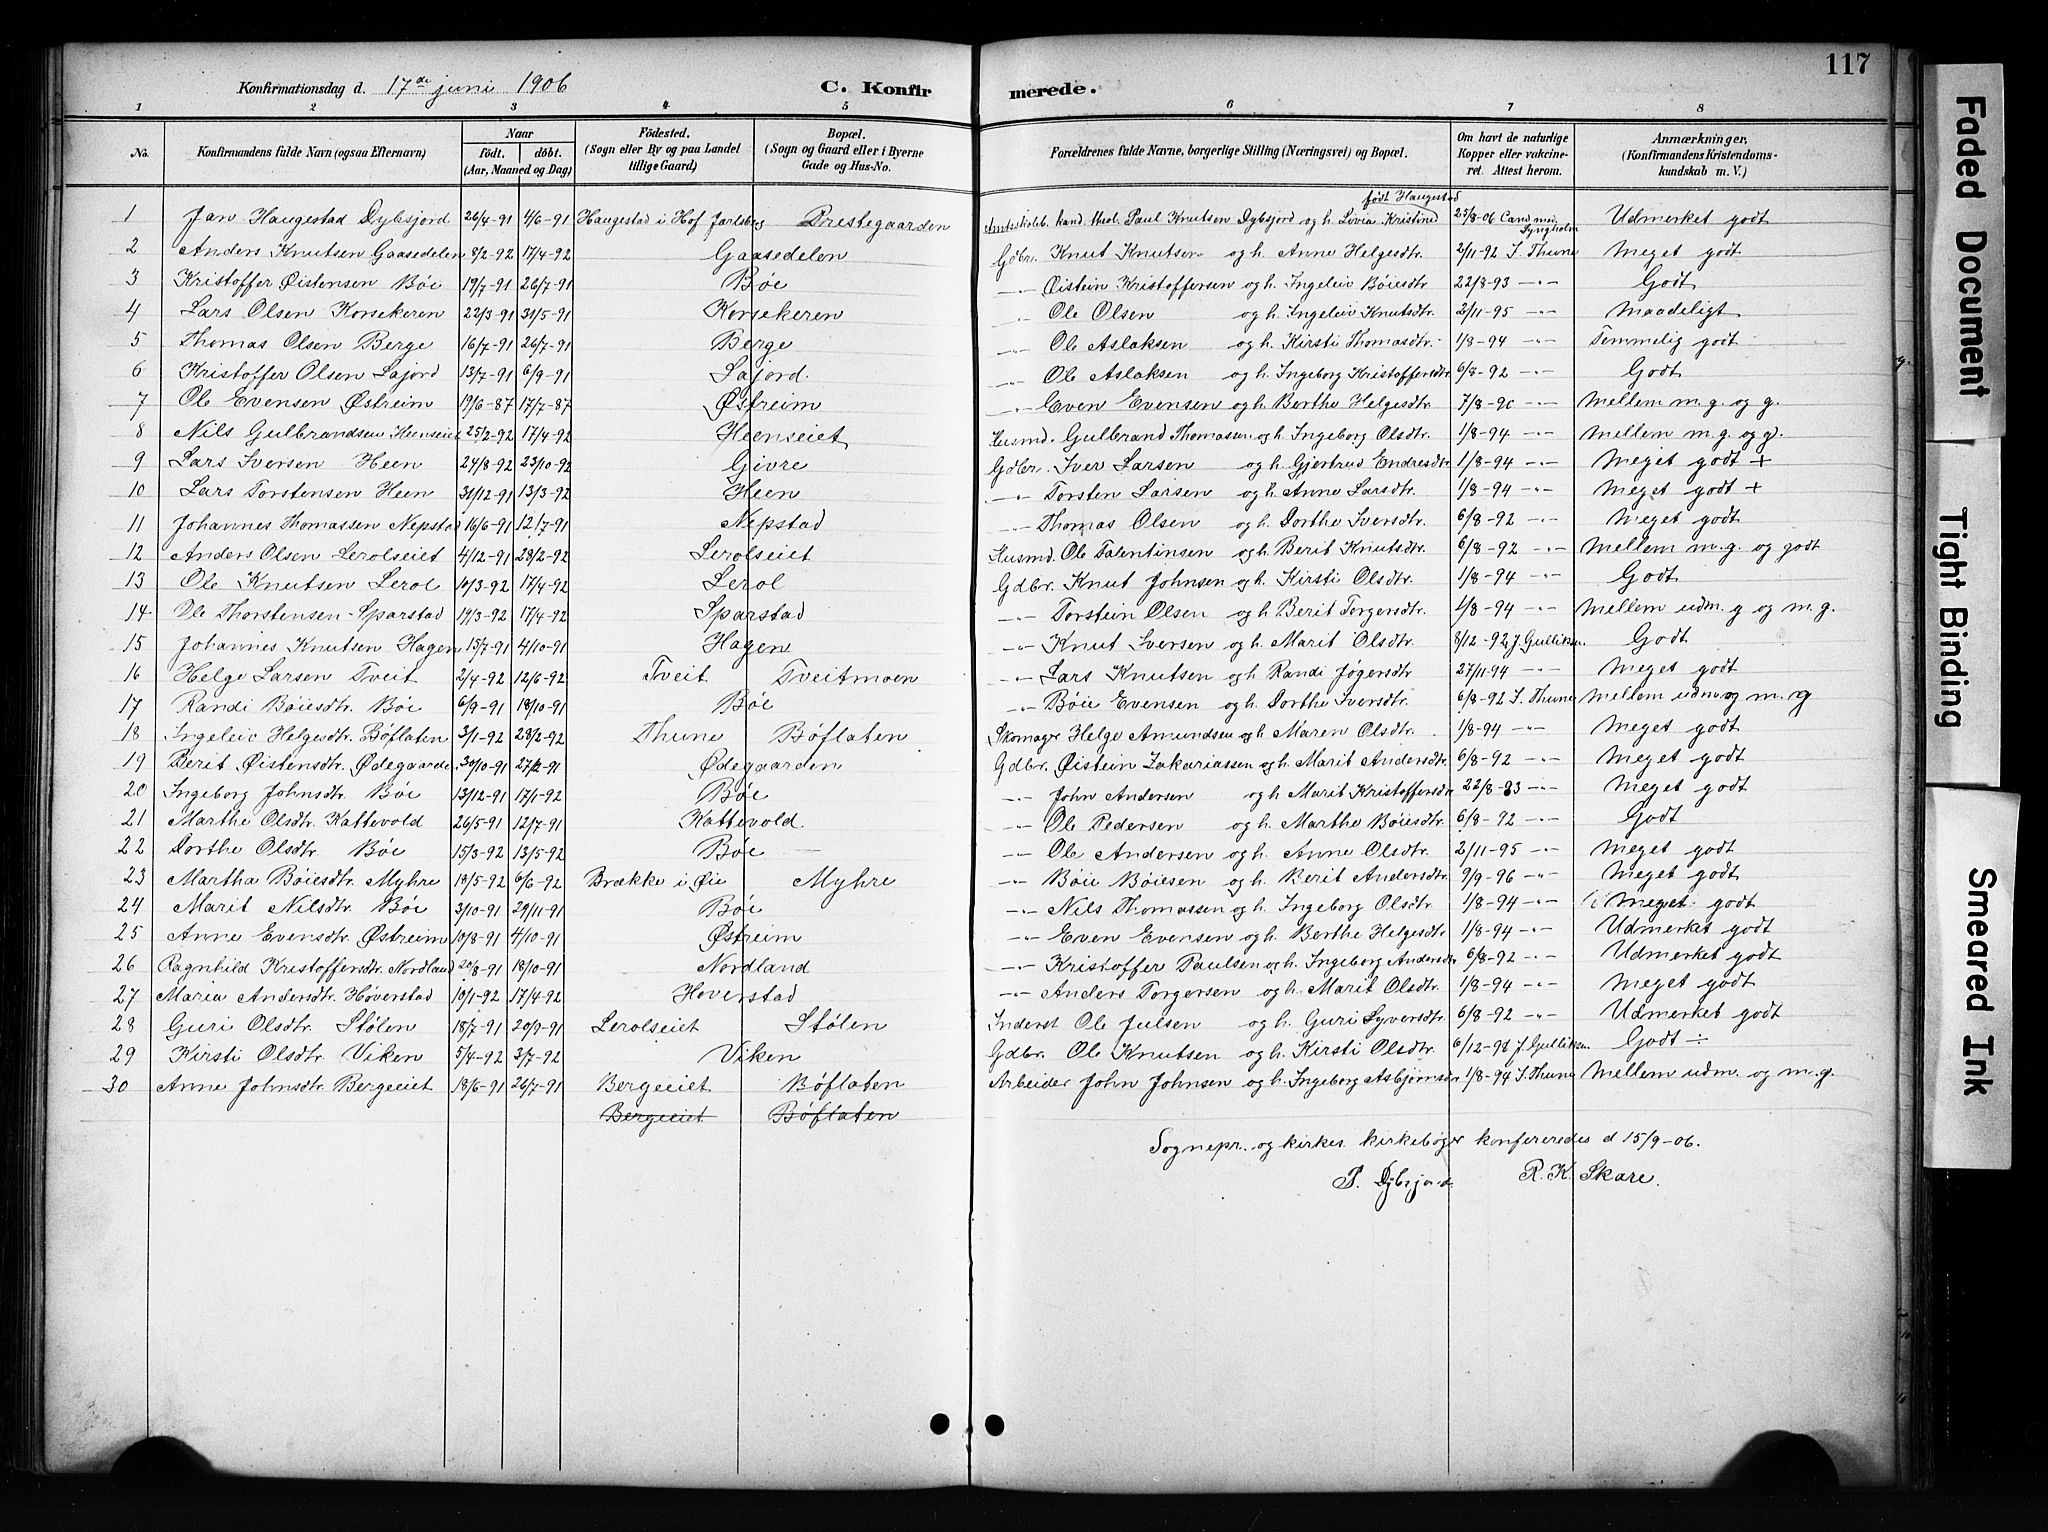 117
Konfirmationsdag d. 17de juni 1906 C. Konfirmerede.
1 2 3 4 5 6 7 8
No. Konfirmandens fulde Navn (ogsaa Efternavn) Naar födt. döbt. (Aar, Maaned og Dag) Födested. (Sogn eller By og paa Landet tillige Gaard) Bopæl. (Sogn og Gaard eller i Byerne Gade og Hus-No. Forældrenes fulde Navne, borgerlige Stilling (Næringsvei) og Bopæl. Om havt de naturlige Kopper eller vakcineret. Attest herom. Anmærkninger, (Konfirmandens Kristendomskundskab m. V.)
født Haugestad
1 Jan Haugestad Dybsjord 26/4-91 4/6-91 Haugestad i Hof Jarlsberg Prestegaarden Paul Knutsen Dybsjord og h. Livia Kristine 23/8-06 Cand med. Lyngholm Udmerket godt
2 Anders Knutsen Gaasedelen 8/2-92 17/4-92 Gaasedelen Gdbr. Knut Knutsen og h. Anne Helgesdtr 2/11-92 I. Thune Meget godt
3 Kristoffer Øistensen Bøe 19/7-91 26/7-91 Bøe -"- Øistein Kristoffersen og h. Ingeleiv Bøiesdtr 22/8-93 -"- Godt
4 Lars Olsen Korsekeren 22/3-91 31/5-91 Korsekeren -"- Ole Olsen og h. Ingeleiv Knutsdtr. 2/11-95 -"- Maadeligt
5 Thomas Olsen Berge 16/7-91 26/7-91 Berge -"- Ole Aslaksen og h. Kirsti Thomasdtr. 1/8-94 -"- Temmelig godt
6 Kristoffer Olsen Lajord 13/7-91 6/9-91 Lajord. -"- Ole Aslaksen og h. Ingeborg Kristoffersdtr 6/8-92 -"- Godt
7 Ole Evensen Østreim 19/6-87 17/7-87 Østreim -"- Even Evensen og h. Berthe Helgesdtr. 7/8-90 -"- Mellem m.g. og g.
8 Nils Gulbrandsen Heenseiet 25/2-92 17/4-92 Heenseiet Husmd. Gulbrand Thomassen og h. Ingeborg Olsdtr. 1/8-94 -"- Mellem m.g. og g.
9 Lars Iversen Heen 24/8-92 23/10-92 Givre Gdbr. Iver Larsen og h. Gjertrud Endresdtr 1/8-94 -"- Meget godt +
10 Lars Torstensen Heen 31/12-91 13/3-92 Heen -"- Torsten Larsen og h. Anne Larsdtr. 1/8-94 -"- Meget godt +
11 Johannes Thomassen Nepstad 16/6-91 12/7-91 Nepstad -"- Thomas Olsen og h. Dorthe Iversdtr. 6/8-92 -"- Meget godt
12 Anders Olsen Lerolseiet 4/12-91 28/2-92 Lerolseiet Husmd. Ole Talentinsen og h. Berit Knutsdtr. 6/8-92 -"- Mellem m.g. og godt
13 Ole Knutsen Lerol 10/3-92 17/4-92 Lerol Gdbr. Knut Johnsen og h. Kirsti Olsdtr. 1/8-94 -"- Godt
14 Ole Thorstensen Sparstad 19/3-92 17/4-92 Sparstad -"- Torstein Olsen og h. Berit Torgersdtr. 1/8-94 -"- Mellem udm. g og m.g.
15 Johannes Knutsen Hagen 15/7-91 4/10-91 Hagen -"- Knut Iversen og h. Marit Olsdtr. 8/12-92 J. Gulliksen Godt
16 Helge Larsen Tveit 2/4-92 12/6-92 Tveit Tveitmoen -"- Lars Knutsen og h. Randi Jøgersdtr 27/11-94 -"- Meget godt
17 Randi Bøiesdtr. Bøe 6/9-91 18/10-91 Bøe -"- Bøie Evensen og h. Dorthe Iversdtr. 6/8-92 I. Thune Mellem udm. og m.g
18 Ingeleiv Helgesdtr. Bøflaten 3/1-92 28/2-92 Thune Bøflaten Skomager Helge Amundsen og h. Maren Olsdtr. 1/8-94 -"- Meget godt
19 Berit Østensdtr. Ødegaarden 30/10-91 27/12-91 Ødegaarden Gdbr. Øistein Zakariassen og h. Marit Andersdtr. 6/8-92 -"- Meget godt
20 Ingeborg Johnsdtr. Bøe 13/12-91 17/1-92 Bøe -"- John Andersen og h. Marit Kristoffersdtr 22/8-93 -"- Meget godt
21 Marthe Olsdtr. Kattevold 26/5-91 12/7-91 Kattevold. -"- Ole Pedersen og h. Marthe Bøiesdtr. 6/8-92 -"- Godt
22 Dorthe Olsdtr. Bøe 15/3-92 13/5-92 Bøe -"- Ole Andersen og h. Anne Olsdtr. 2/11-95 -"- Meget godt
23 Martha Bøiesdtr. Myhre 18/5-92 6/6-92 Brække i Øie Myhre -"- Bøie Bøiesen og h. Berit Andersdtr. 9/9-96 -"- Meget godt
24 Marit Nilsdtr. Bøe 3/10-91 29/11-91 Bøe -"- Nils Thomassen og h. Ingeborg Olsdtr. 1/8-94 -"- Meget godt
25 Anne Evensdtr. Østreim 10/8-91 4/10-91 Østreim -"- Even Evensen og h. Berthe Helgesdtr 1/8-94 -"- Udmerket godt
26 Ragnhild Kristoffersdtr. Nordland 20/8-91 18/10-91 Nordland -"- Kristoffer Paulsen og h. Ingeborg Andersdtr 6/8-92 -"- Udmerket godt
27 Maria Andersdtr. Høverstad 10/1-92 17/4-92 Høverstad -"- Anders Torgersen og h. Marit Olsdtr. 1/8-94 -"- Meget godt
28 Guri Olsdtr. Stølen 18/7-91 20/9-91 Lerolseiet Stølen Inderst Ole Julsen og h. Guri Syversdtr. 6/8-92 -"- Udmerket godt
29 Kirsti Olsdtr. Viken 5/4-92 3/7-92 Viken Gdbr. Ole Knutsen og h. Kirsti Olsdtr. 6/12-98 J. Gulliksen. Godt ÷
30 Anne Johnsdtr. Bergeeiet 18/6-91 26/7-91 Bergeeiet Bøflaten Arbeider John Johnsen og h. Ingeborg Asbjørnsdtr 1/8-94 I. Thune Mellem udm. og m.g.
Bergeeiet Bøflaten
Sognepr. og kirkes. kirkebøger konfereredes d 15/9-06.
P. Dybsjord. R. K. Skare.
Faded Document
Tight Binding
Smeared Ink